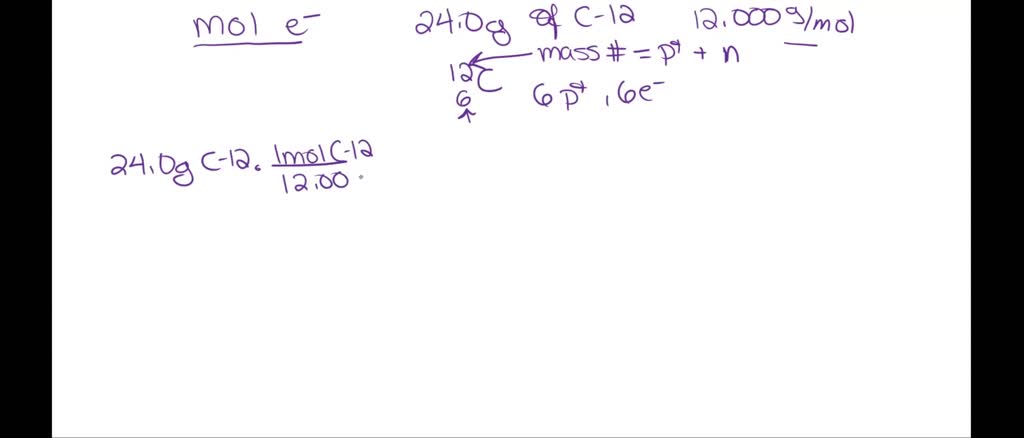 mol e⁻ 24.0g of C-12 12.000 g/mol
mass # = p⁺ + n
12 C
6 6 p⁺, 6e⁻
24.0g C-12 · 1mol C-12
12.00